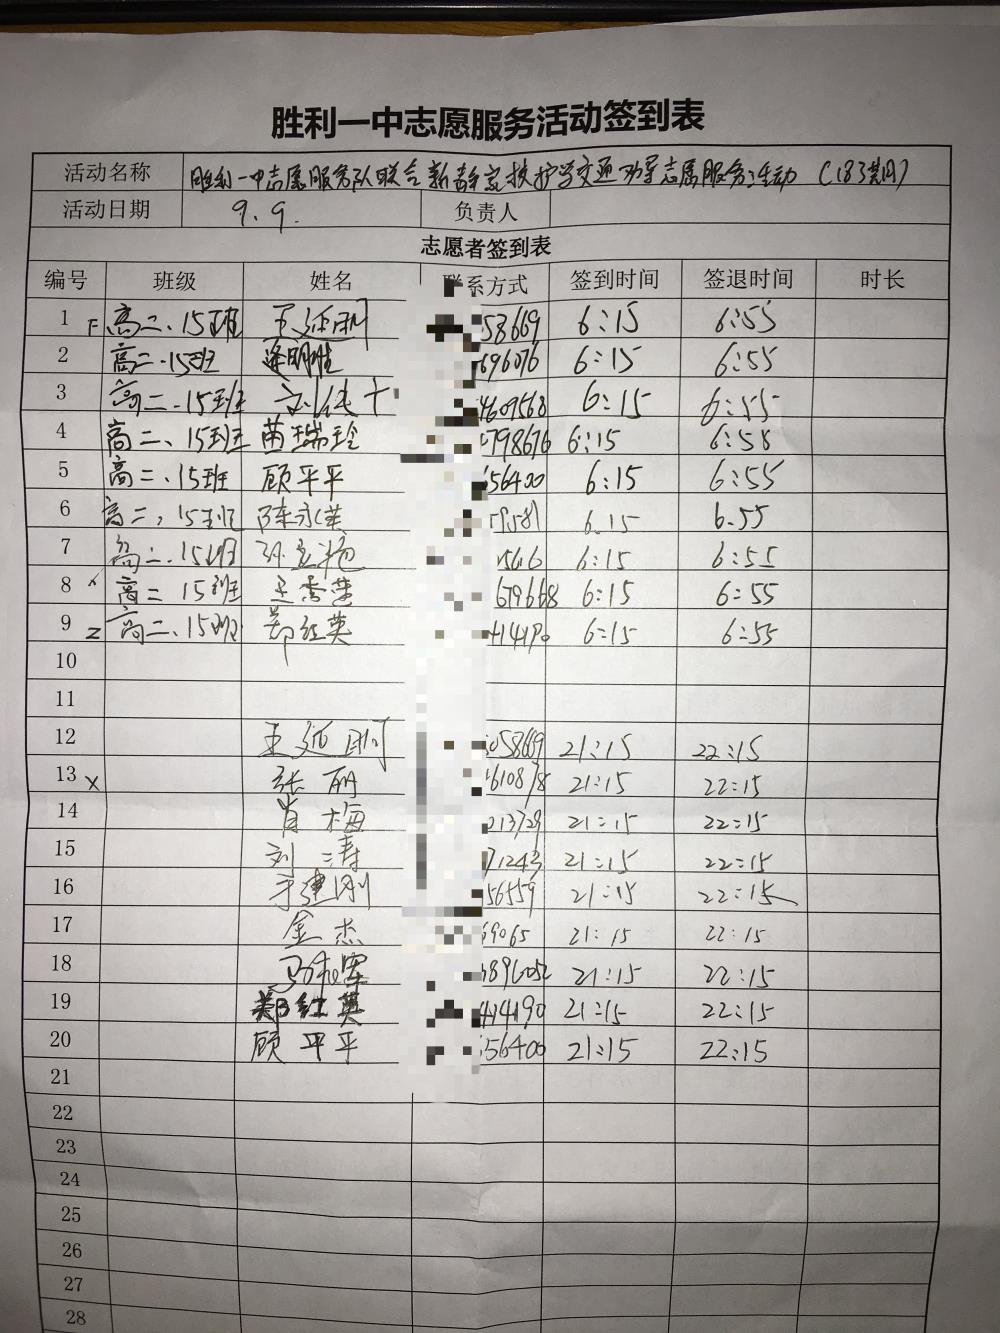 胜利一中志愿服务活动签到表
活动名称 胜利一中志愿服务队联合新 家 护学交通劝导志愿服务活动 (183期)
活动日期 9.9. 负责人
志愿者签到表
编号 班级 姓名 联系方式 签到时间 签退时间 时长
1 F 高二、15班 王 刚 58669 6:15 6:55
2 高二.15班 逄明胜 696076 6:15 6:55
3 高二.15班 4609568 6:15 6:55
4 高二、15班 苗瑞玲 798676 6:15 6:58
5 高二、15班 顾平平 656400 6:15 6:55
6 高二,15班 陈永英 6.15 6.55
7 高二.15班 孙 艳 6:15 6:55
8 高二 15班 王秀莲 679668 6:15 6:55
9 Z 高二、15班 郑红英 414190 6:15 6:55
10
11
12 王 刚 058669 21:15 22:15
13 X 张丽 610878 21:15 22:15
14 肖梅 213729 21:15 22:15
15 刘涛 71243 21:15 22:15
16 于建刚 56559 21:15 22:15
17 金杰 69065 21:15 22:15
18 马 军 896052 21:15 22:15
19 郑红英 414190 21:15 22:15
20 顾平平 656400 21:15 22:15
21
22
23
24
25
26
27
28